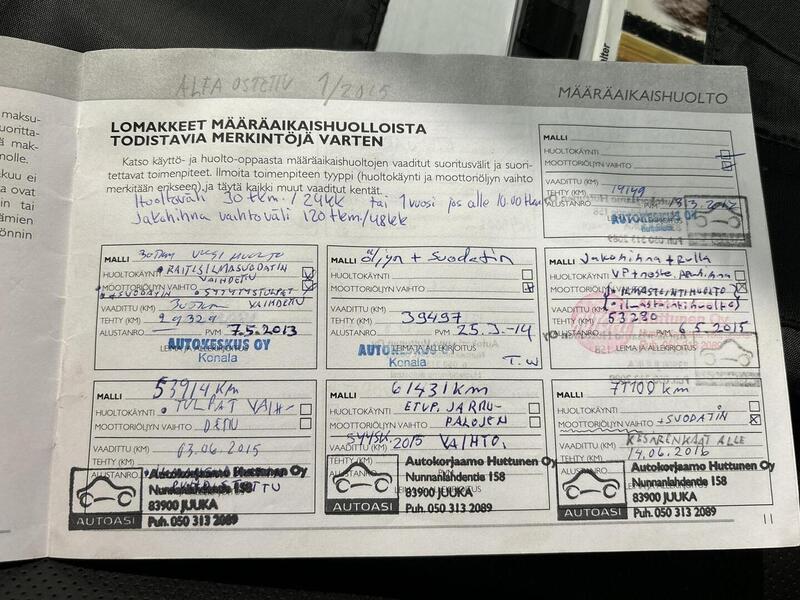 ALFA OSTETTU 1/2015
MÄÄRÄAIKAISHUOLTO
LOMAKKEET MÄÄRÄAIKAISHUOLLOISTA
TODISTAVIA MERKINTÖJÄ VARTEN
Katso käyttö- ja huolto-oppaasta määräaikaishuoltojen vaaditut suoritusvälit ja suori-
tettavat toimenpiteet. Ilmoita toimenpiteen tyyppi (huoltokäynti ja moottoriöljyn vaihto
merkitään erikseen) ja täytä kaikki muut vaaditut kentät.
Huoltoväli 30 tkm / 24kk tai 1 vuosi jos alle 10.000 tkm
Jakohihna vaihtoväli 120 tkm/48kk
maksu-
uoritta-
mak-
nolle.
kuu ei
a ovat
in tai
tämien
önnin
MALLI
HUOLTOKÄYNTI
MOOTTORIÖLJYN VAIHTO
VAADITTU (KM)
TEHTY (KM) 19149
ALUSTANRO. 13.3.2012
AUTOKESKUS OY
Konala
MALLI 30 tkm
HUOLTOKÄYNTI • RAITISILMASUODATIN
VAIHDETTU
MOOTTORIÖLJYN VAIHTO
• SUODATIN • SYTYTYSTULPAT
VAADITTU (KM) 30 tkm VAIHDETTU
TEHTY (KM) 29329
ALUSTANRO PVM 7.5.2013
LEIMA JA ALLEKIRJOITUS
AUTOKESKUS OY
Konala
MALLI Öljyn + Suodatin
HUOLTOKÄYNTI
MOOTTORIÖLJYN VAIHTO
VAADITTU (KM)
TEHTY (KM) 39497
ALUSTANRO PVM 25.3.-14
LEIMA JA ALLEKIRJOITUS
AUTOKESKUS OY
Konala
T.W
MALLI Jakohihna + Rulla
HUOLTOKÄYNTI VP + moniura-apuhihna
MOOTTORIÖLJYN VAIHTO
VAADITTU (KM)
TEHTY (KM) 53280
ALUSTANRO PVM 6.5.2015
LEIMA JA ALLEKIRJOITUS
53914 KM
MALLI
HUOLTOKÄYNTI • TULPAT VAIH-
MOOTTORIÖLJYN VAIHTO DETTU
VAADITTU (KM) 03.06.2015
TEHTY (KM)
ALUSTANRO.
Autokorjaamo Huttunen Oy
Nunnanlahdentie 158
83900 JUUKA
Puh. 050 313 2089
AUTOASI
61431 KM
MALLI
HUOLTOKÄYNTI ETUP. JARRU-
MOOTTORIÖLJYN VAIHTO PALOJEN
VAADITTU (KM) SYYSK. 2015 VAIHTO.
TEHTY (KM)
ALUSTANRO.
LEIMA JA ALLEKIRJOITUS
Autokorjaamo Huttunen Oy
Nunnanlahdentie 158
83900 JUUKA
Puh. 050 313 2089
AUTOASI
77100 KM
MALLI
HUOLTOKÄYNTI
MOOTTORIÖLJYN VAIHTO + SUODATIN
VAADITTU (KM) KESÄRENKAAT ALLE
TEHTY (KM) 14.06.2016
ALUSTANRO
Autokorjaamo Huttunen Oy
Nunnanlahdentie 158
83900 JUUKA
Puh. 050 313 2089
AUTOASI
11